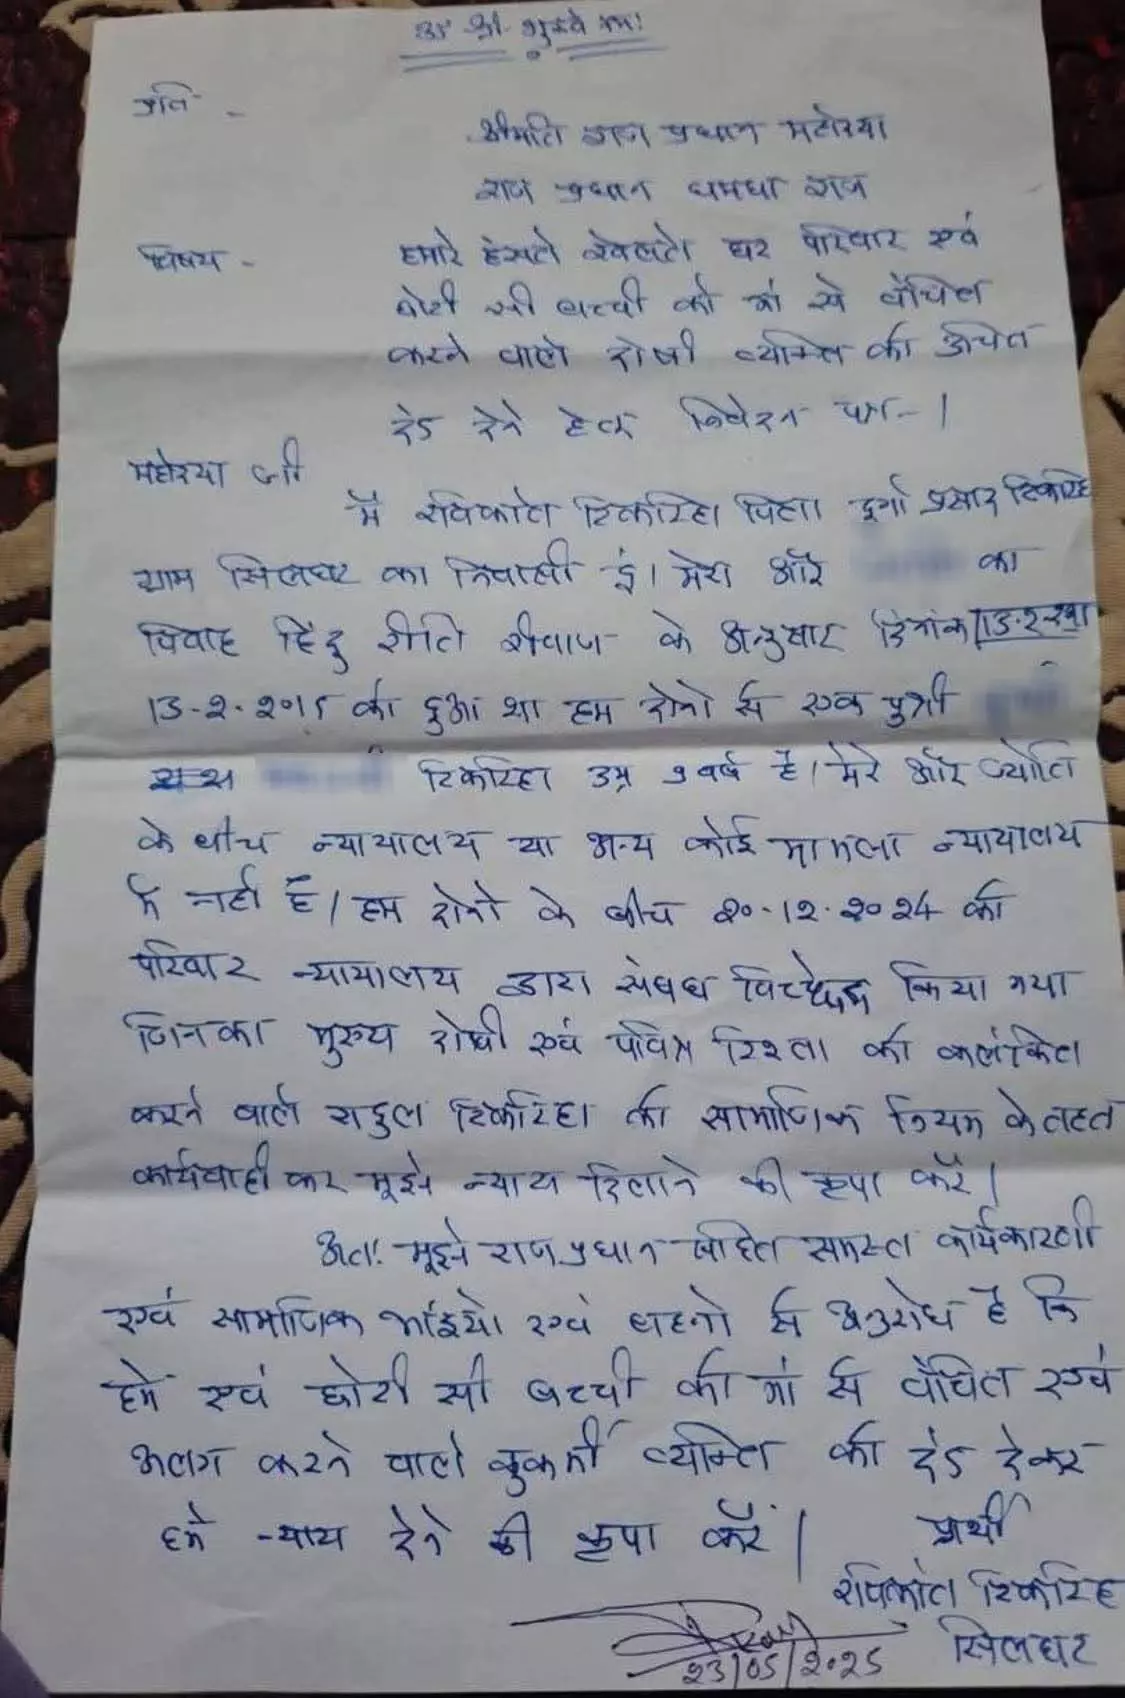 ॐ श्री गुरुवे नमः
प्रति -
श्रीमति राज प्रधान महोदया
राज प्रधान धमधा राज
विषय - हमारे हंसते खेलते घर परिवार एवं
छोटी सी बच्ची को मां से वंचित
करने वाले दोषी व्यक्ति को उचित
दंड देने हेतु निवेदन पत्र - ।
महोदया जी
मैं रविकांत टिकरिहा पिता दुर्गा प्रसाद टिकरिहा
ग्राम सिलघट का निवासी हूं। मेरा और का
विवाह हिंदु रीति रीवाज के अनुसार दिनांक
13-2-2015 को हुआ था हम दोनो से एक पुत्री
टिकरिहा उम्र 9 वर्ष है। मेरे और ज्योति
के बीच न्यायालय या अन्य कोई मामला न्यायालय
में नहीं है। हम दोनो के बीच 20-12-2024 को
परिवार न्यायालय द्वारा संबध विच्छेद किया गया
जिनका मुख्य दोषी एवं पवित्र रिश्ता को कलंकित
करने वाले राहुल टिकरिहा को सामाजिक नियम के तहत
कार्यवाही कर मूझे न्याय दिलाने की कृपा करें।
अतः मूझे राज प्रधान सहित समस्त कार्यकारणी
एवं सामाजिक भांइयो एवं बहनो से अनुरोध है कि
हमे एवं छोटी सी बच्ची को मां से वंचित एवं
अलग करने वाले कुकर्मी व्यक्ति को दंड देकर
हमे न्याय देने की कृपा करें।
प्रार्थी
रविकांत टिकरिहा
सिलघट
23/05/2025